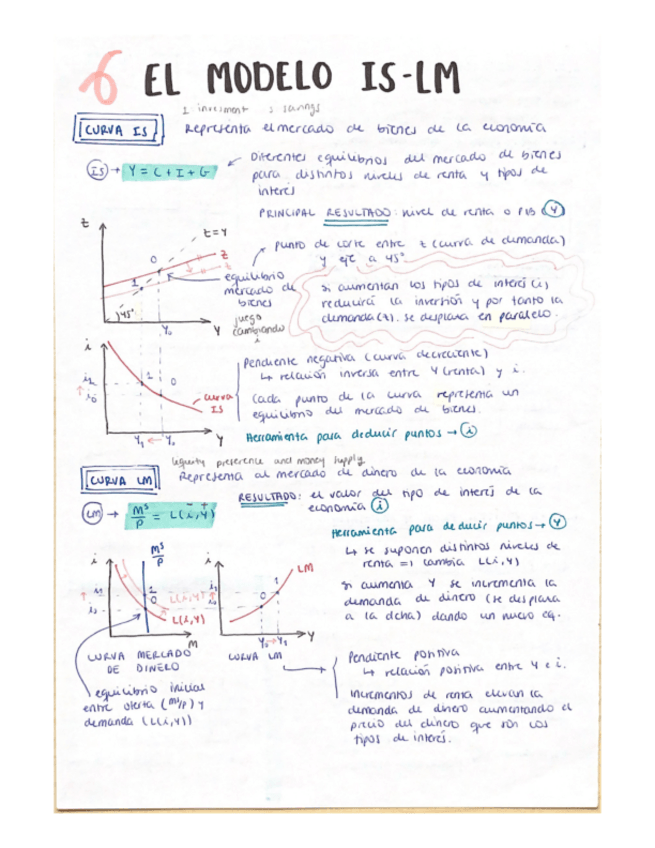 6 EL MODELO IS-LM
I investment S savings
CURVA IS Representa el mercado de bienes de la economía
IS → Y = C + I + G
Diferentes equilibrios del mercado de bienes
para distintos niveles de renta y tipos de
interés
PRINCIPAL RESULTADO: nivel de renta o PIB Y
z
z=Y
z
0
1
45°
Y0
Y
equilibrio
mercado de
bienes
juego
cambiando
i
punto de corte entre z (curva de demanda)
y eje a 45°
si aumentan los tipos de interés (i)
reducirá la inversión y por tanto la
demanda (z). se desplaza en paralelo.
i
i1
i0
1
0
curva
IS
Y1 ← Y0
Y
Pendiente negativa (curva decreciente)
↳ relación inversa entre Y (renta) y i.
Cada punto de la curva representa un
equilibrio del mercado de bienes.
Herramienta para deducir puntos → i
liquidity preference and money supply
CURVA LM Representa al mercado de dinero de la economía
LM → M^s/P = L(i,Y)
- +
RESULTADO: el valor del tipo de interés de la
economía i
Herramienta para deducir puntos → Y
↳ se suponen distintos niveles de
renta => cambia L(i,Y)
si aumenta Y se incrementa la
demanda de dinero (se desplaza
a la dcha) dando un nuevo eq.
i
M^s/P
i1
i0
1
0
L(i,Y)
L(i,Y)
M
i
LM
i1
i0
0
1
Y0 → Y1
Y
CURVA MERCADO
DE DINERO
CURVA LM
equilibrio inicial
entre oferta (M^s/P) y
demanda (L(i,Y))
Pendiente positiva
↳ relación positiva entre Y e i.
Incrementos de renta elevan la
demanda de dinero aumentando el
precio del dinero que son los
tipos de interés.